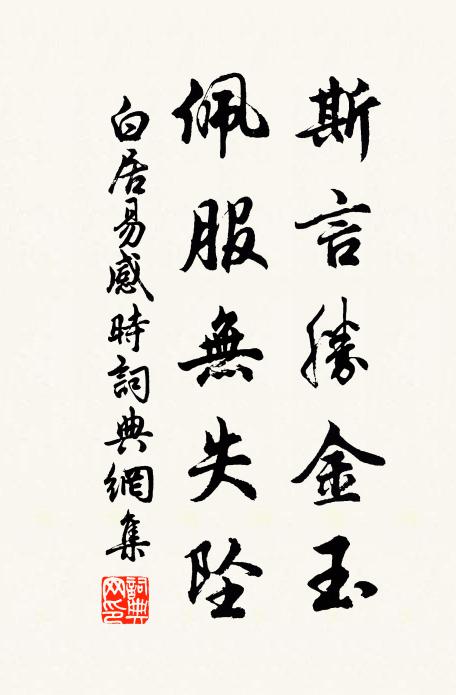 斯言勝金玉
佩服無失墜
白居易感時詞典網集
詞典網印